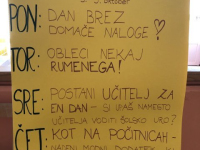 5. OKTOBER
PON: DAN BREZ
DOMAČE NALOGE!
TOR: OBLECI NEKAJ
RUMENEGA!
SRE: POSTANI UČITELJ ZA
EN DAN - SI UPAŠ NAMESTO
UČITELJA VODITI ŠOLSKO URO?
ČET: KOT NA POČITNICAH -
MODNI DODATEK